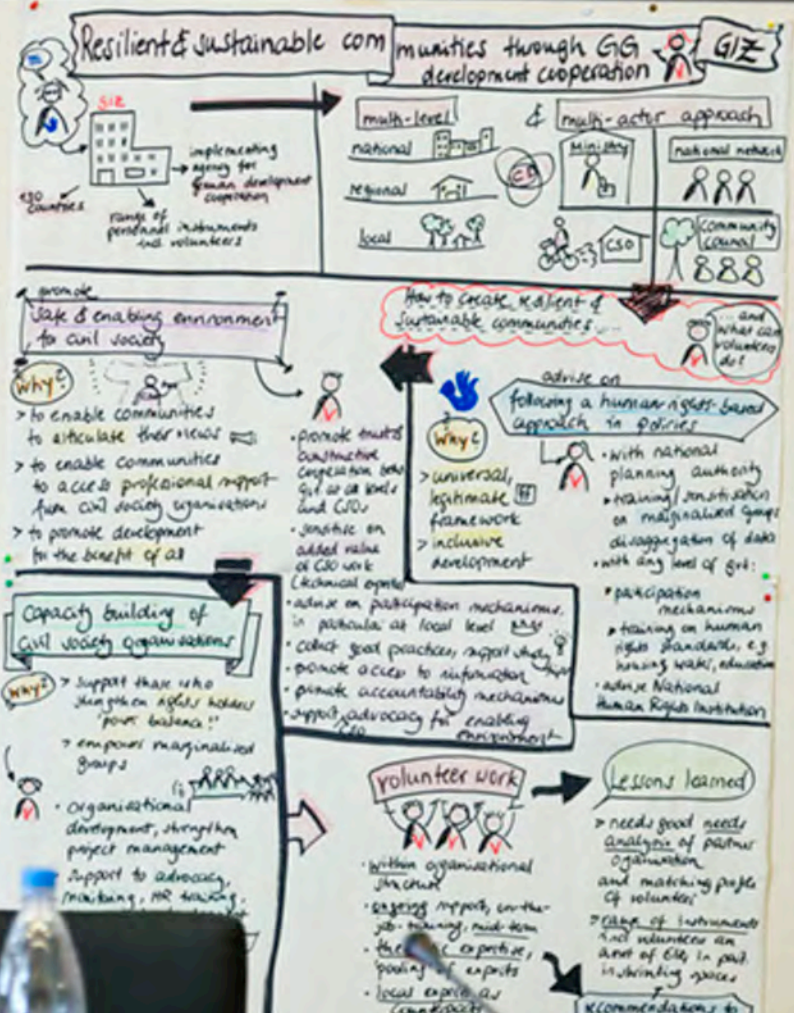 Resilient & sustainable communities through GG
development cooperation
GIZ
GIZ
implementing
agency for
German development
cooperation
130
countries
range of
personnel instruments
incl. volunteers
multi-level
&
multi-actor approach
national
regional
local
Ministry
national network
CSO
community
council
How to create resilient &
sustainable communities...
... and
what can
volunteers
do?
promote
safe & enabling environment
for civil society
Why?
> to enable communities
to articulate their views
> to enable communities
to access professional support
from civil society organisations
> to promote development
for the benefit of all
• promote trust &
constructive
cooperation betw.
gvt at all levels
and CSOs
• sensitise on
added value
of CSO work
(technical experts)
• advise on participation mechanisms,
in particular at local level
• collect good practices, support study
• promote access to information
• promote accountability mechanisms
• support advocacy for enabling
CSO environment
advise on
following a human rights-based
approach in policies
Why?
> universal,
legitimate
framework
> inclusive
development
• with national
planning authority
training/sensitisation
on marginalised groups
disaggregation of data
• with any level of gvt:
participation
mechanisms
training on human
rights standards, e.g.
housing, water, education
• advise National
Human Rights Institution
Capacity building of
civil society organisations
Why?
> support those who
strengthen rights holders
"power balance!"
> empower marginalised
groups
• organisational
development, strengthen
project management
• support to advocacy,
monitoring, HR training,
volunteer work
• within organisational
structure
• ongoing support, on-the-
job-training, mid-term
expertise,
pooling of experts
• local experts as
counterparts
Lessons learned
> needs good needs
analysis of partner
organisation
and matching profile
of volunteer
> range of instruments
incl. volunteers an
asset of GIZ, in part.
in shrinking spaces
recommendations to